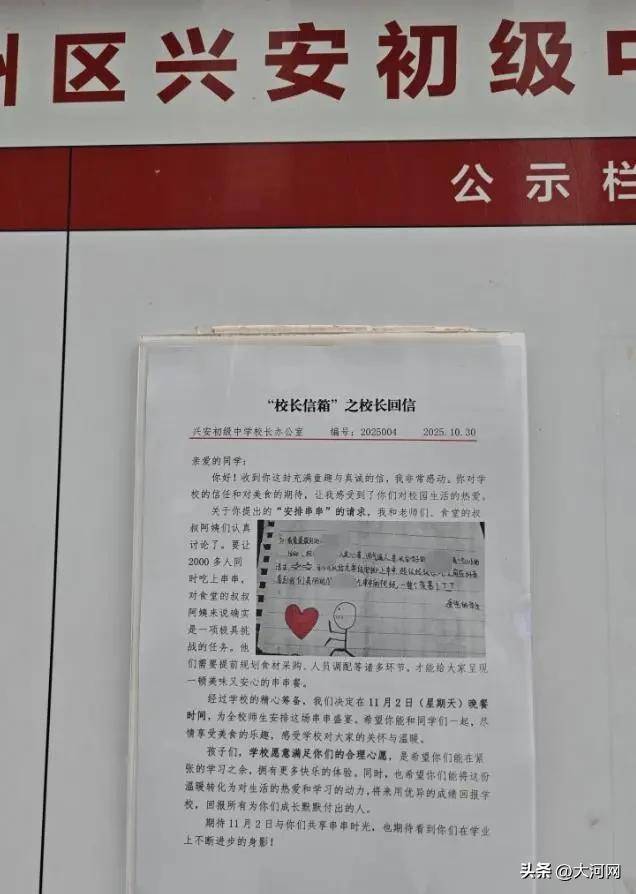 区兴安初级中
公示栏
“校长信箱”之校长回信
兴安初级中学校长办公室 编号：2025004 2025.10.30
亲爱的同学：
你好！收到你这封充满童趣与真诚的信，我非常感动。你对学
校的信任和对美食的期待，让我感受到了你们对校园生活的热爱。
关于你提出的“安排串串”的请求，我和老师们、食堂的叔
叔阿姨们认真
讨论了。要让
2000 多人同
时吃上串串，
对食堂的叔叔
阿姨来说确实
是一项极具挑
战的任务。他
们需要提前规划食材采购、人员调配等诸多环节，才能给大家呈现
一顿美味又安心的串串餐。
经过学校的精心筹备，我们决定在 11 月 2 日（星期天）晚餐
时间，为全校师生安排这场串串盛宴。希望你能和同学们一起，尽
情享受美食的乐趣，感受学校对大家的关怀与温暖。
孩子们，学校愿意满足你们的合理心愿，是希望你们能在紧
张的学习之余，拥有更多快乐的体验。同时，也希望你们能将这份
温暖转化为对生活的热爱和学习的动力，将来用优异的成绩回报学
校，回报所有为你们成长默默付出的人。
期待 11 月 2 日与你们共享串串时光，也期待看到你们在学业
上不断进步的身影！
头条 @大河网